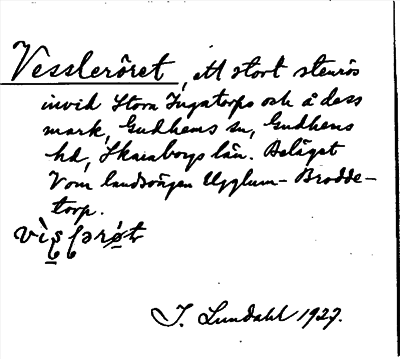 Vessleröret, ett stort stenrös
invid Stora Ingatorps och å dess
mark, Gudhems sn, Gudhems
hd, Skaraborgs län. Beläget
V om landsvägen Ugglum - Brodde-
torp.
I. Lundahl 1927.